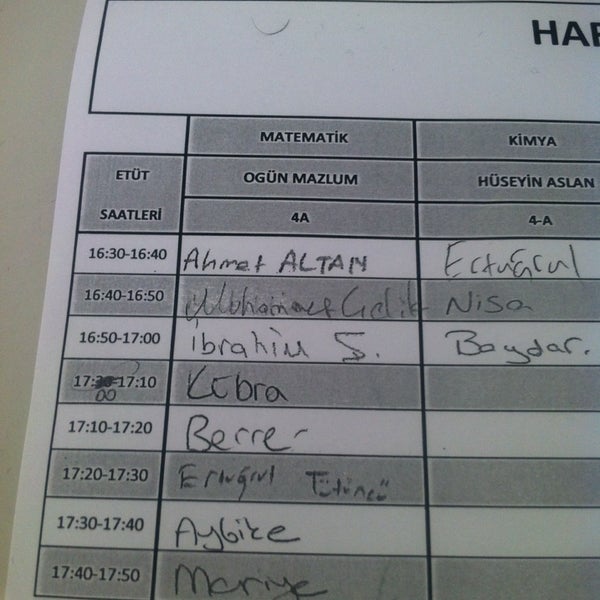 HAF
MATEMATİK KİMYA
ETÜT SAATLERİ OGÜN MAZLUM HÜSEYİN ASLAN
4A 4-A
16:30-16:40 Ahmet ALTAN Ertuğrul
16:40-16:50 Muhammet Çelik Nisa
16:50-17:00 İbrahim Ş. Baydar.
17:00-17:10 Kübra
17:10-17:20 Berrer
17:20-17:30 Ertuğrul Tütüncü
17:30-17:40 Aybike
17:40-17:50 Mariye